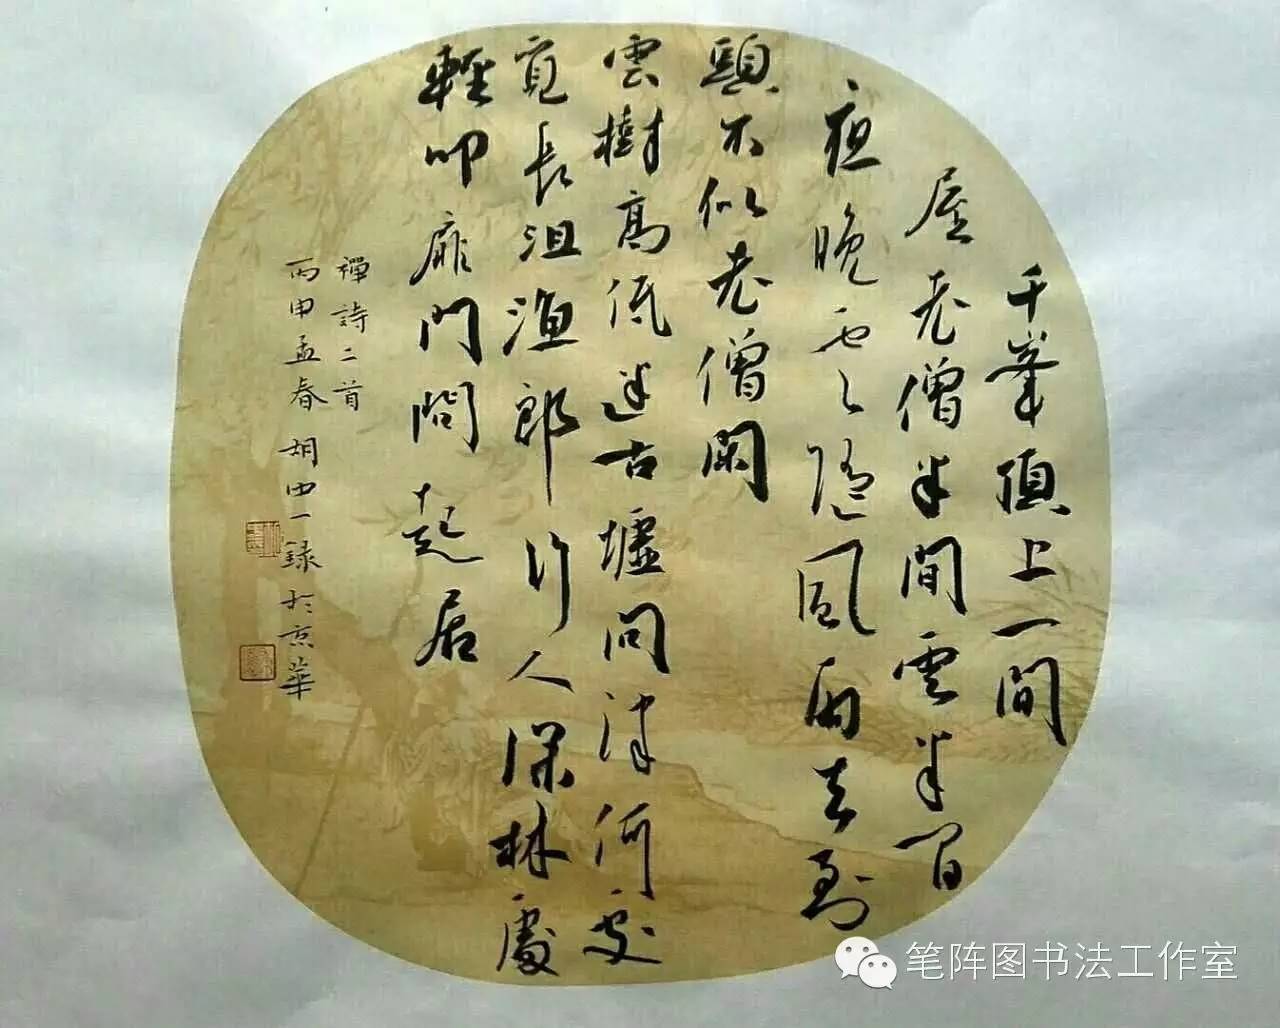 千峯頂上一間
屋老僧半間雲半間
夜晚雲隨風雨去到
頭不似老僧閑
雲樹高低迷古墟問津何處
覓長沮漁郎引入深林處
輕叩扉門問起居
禪詩二首
丙申孟春胡由一録於京華
笔阵图书法工作室